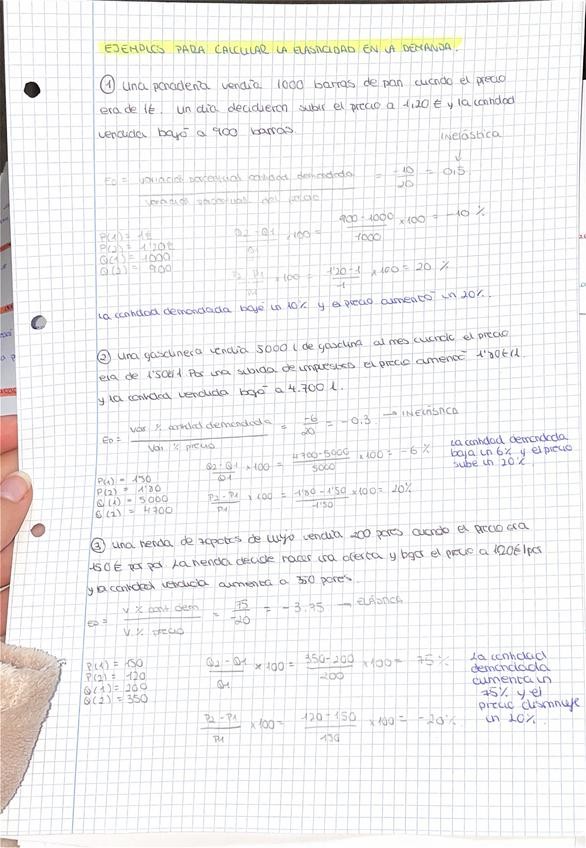 EJEMPLOS PARA CALCULAR LA ELASTICIDAD EN LA DEMANDA.
① Una panadería vendía 1000 barras de pan cuando el precio
era de 1€. Un día decidieron subir el precio a 1,20€ y la cantidad
vendida bajó a 900 barras.
inelástica
↓
ED = variación porcentual cantidad demandada / variación porcentual del precio = -10/20 = 0,5
P(1) = 1€
P(2) = 1'20€
Q(1) = 1000
Q(2) = 900
Q2 - Q1 / Q1 · 100 = 900 - 1000 / 1000 × 100 = -10 %
P2 - P1 / P1 × 100 = 1'20 - 1 / 1 × 100 = 20 %
La cantidad demandada bajó un 10% y el precio aumentó un 20%.
② Una gasolinera vendía 5000 l de gasolina al mes cuando el precio
era de 1'50€/l. Por una subida de impuestos el precio aumentó 1'80€/l
y la cantidad vendida bajó a 4.700 l.
ED = Var % cantidad demandada / Var % precio = -6/20 = -0,3 → INELÁSTICA
P(1) = 1'50
P(2) = 1'80
Q(1) = 5000
Q(2) = 4700
Q2 - Q1 / Q1 × 100 = 4700 - 5000 / 5000 × 100 = -6 %
P2 - P1 / P1 × 100 = 1'80 - 1'50 / 1'50 × 100 = 20%
La cantidad demandada
baja un 6% y el precio
sube un 20%
③ Una tienda de zapatos de lujo vendía 200 pares cuando el precio era
150€ por par. La tienda decide hacer una oferta y bajar el precio a 120€/par
y la cantidad vendida aumenta a 350 pares.
ED = V % cant dem / V. % precio = 75/-20 = -3.75 → ELÁSTICA
P(1) = 150
P(2) = 120
Q(1) = 200
Q(2) = 350
Q2 - Q1 / Q1 × 100 = 350 - 200 / 200 × 100 = 75%
P2 - P1 / P1 × 100 = 120 - 150 / 150 × 100 = -20%
La cantidad
demandada
aumenta un
75% y el
precio disminuye
un 20%